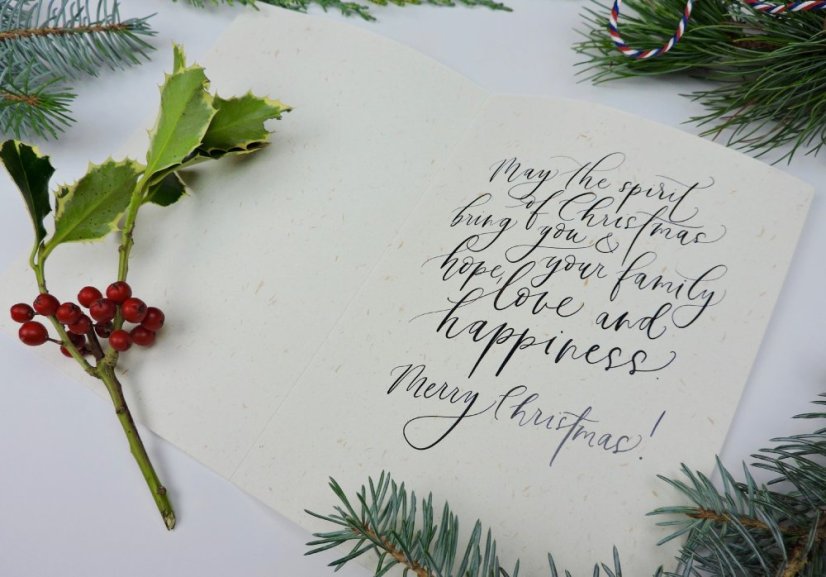 May the spirit
of Christmas
bring you &
your family
hope, love and
happiness.
Merry Christmas!